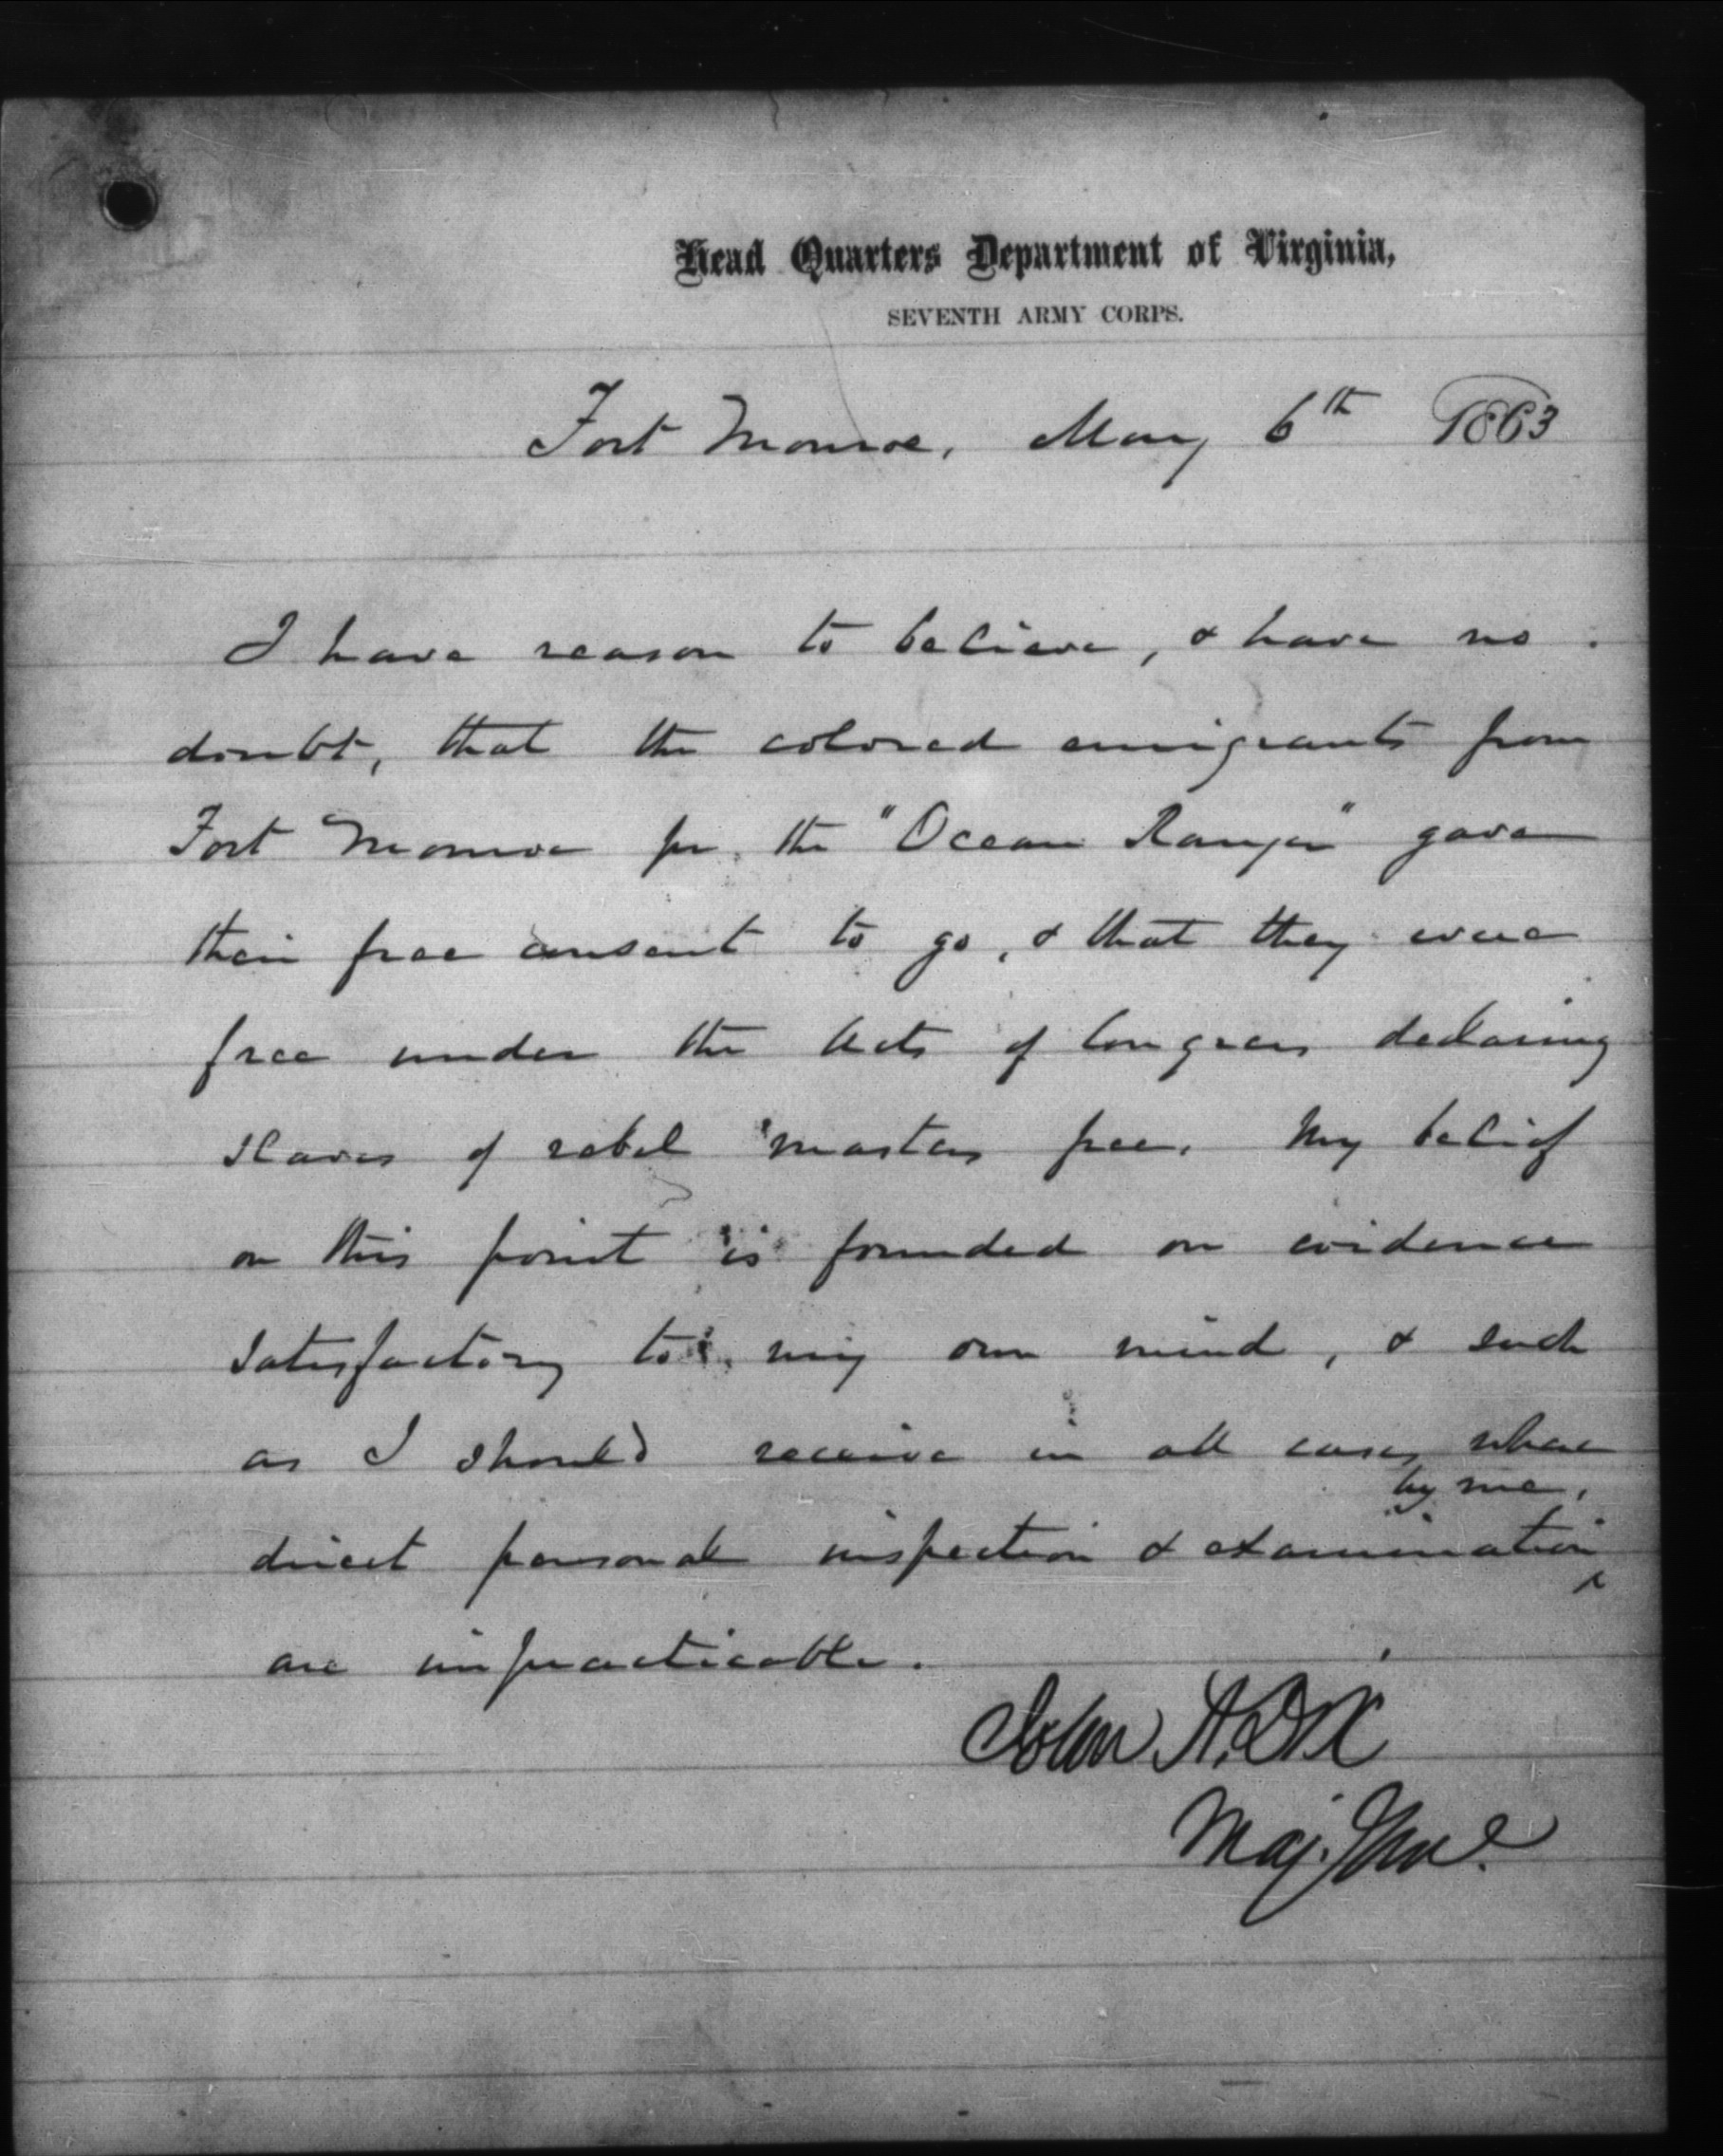 Head Quarters Department of Virginia,
SEVENTH ARMY CORPS.
Fort Monroe, May 6th 1863
I have reason to believe, & have no
doubt, that the colored emigrants from
Fort Monroe pr. the "Ocean Ranger" gave
their free consent to go, & that they were
free under the Acts of Congress declaring
slaves of rebel masters free. My belief
on this point is founded on evidence
satisfactory to my own mind, & such
as I should receive in all cases where
by me,
direct personal inspection & examination
^
are impracticable.
John A. Dix
Maj. Genl.